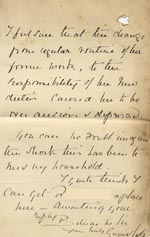 I feel sure that the change
from regular routine of the
former work, to the
responsibility of her new
duties Caused her to be
over anxious & depressed
You can no doubt imagine
the shock this has been to
me & my household
I quite think I
Can get
her — awaiting your
reply